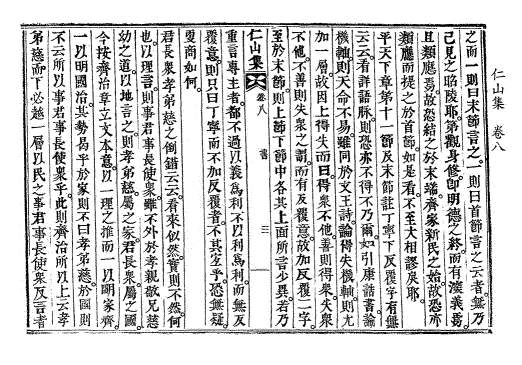 仁山集 卷八
之而一則曰末節言之一則曰首節言之云者無乃
己見之昭陵耶第觀身修卽明德之終而有深義焉
且類應焉故恐結之於末端齊家新民之始故恐亦
類應而提之於首節如是看不至大相謬矣耶
平天下章第十一節及末節註丁寧下反覆字有無
云云看詳語脉則恐亦不得不乃爾如引康誥書論
機軸則天命不易雖同於文王詩論得失機軸則尤
加一層故因上得失而曰得衆不他善則得衆失衆
不他不善則失衆之謂而有反覆意故加反覆一字
至於末節則上節下節中各其上面所言少異者乃
仁山集 卷八 書 三
重言專主者都不過以義爲利不以利爲利而無反
覆意則只曰丁寧而不加反覆者不其宜乎恐無疑
更商如何
君長衆孝弟慈之倒錯云云看來似然實則不然何
也以理言則事君事長使衆雖不外於孝親敬兄慈
幼之道以地言之則孝弟慈屬之家君長衆屬之國
今按齊治章立文本意以一理之推而一以明家齊
一以明國治其勢曷乎於家則不曰孝弟慈於國則
不云所以事君事長使衆乎此則齊治所以上云孝
弟慈而下必越一層以民之事君事長使衆反言者